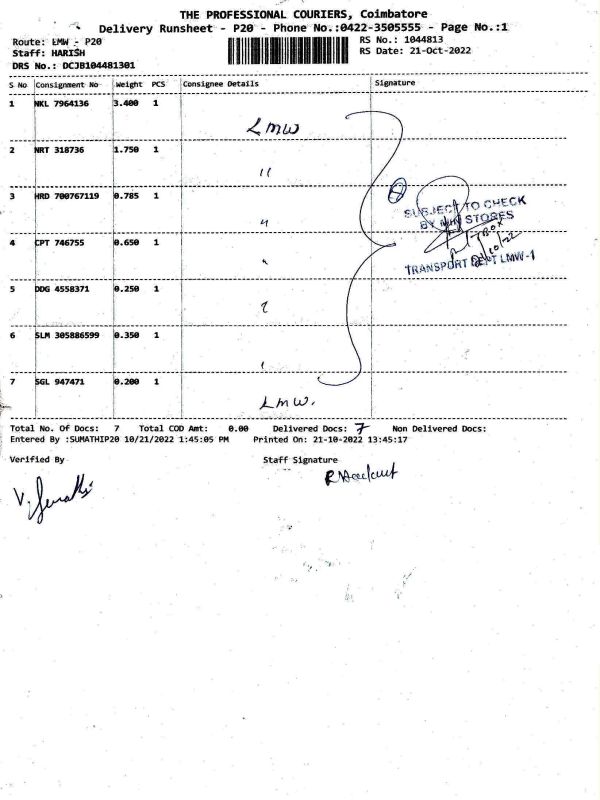 THE PROFESSIONAL COURIERS, Coimbatore
Delivery Runsheet - P20 - Phone No.:0422-3505555 - Page No.:1
Route: LMW - P20 RS No.: 1044813
Staff: HARISH RS Date: 21-Oct-2022
DRS No.: DCJB104481301
S No Consignment No Weight PCS Consignee Details Signature
1 NKL 7964136 3.400 1
LMW
2 NRT 318736 1.750 1
"
3 HRD 700767119 0.785 1
"
SUBJECT TO CHECK
BY MIN STORES
4 CPT 746755 0.650 1
TRANSPORT DEPT LMW-1
5 DDG 4558371 0.250 1
6 SLM 305886599 0.350 1
7 SGL 947471 0.200 1
LMW.
Total No. Of Docs: 7 Total COD Amt: 0.00 Delivered Docs: 7 Non Delivered Docs:
Entered By :SUMATHIP20 10/21/2022 1:45:05 PM Printed On: 21-10-2022 13:45:17
Verified By Staff Signature